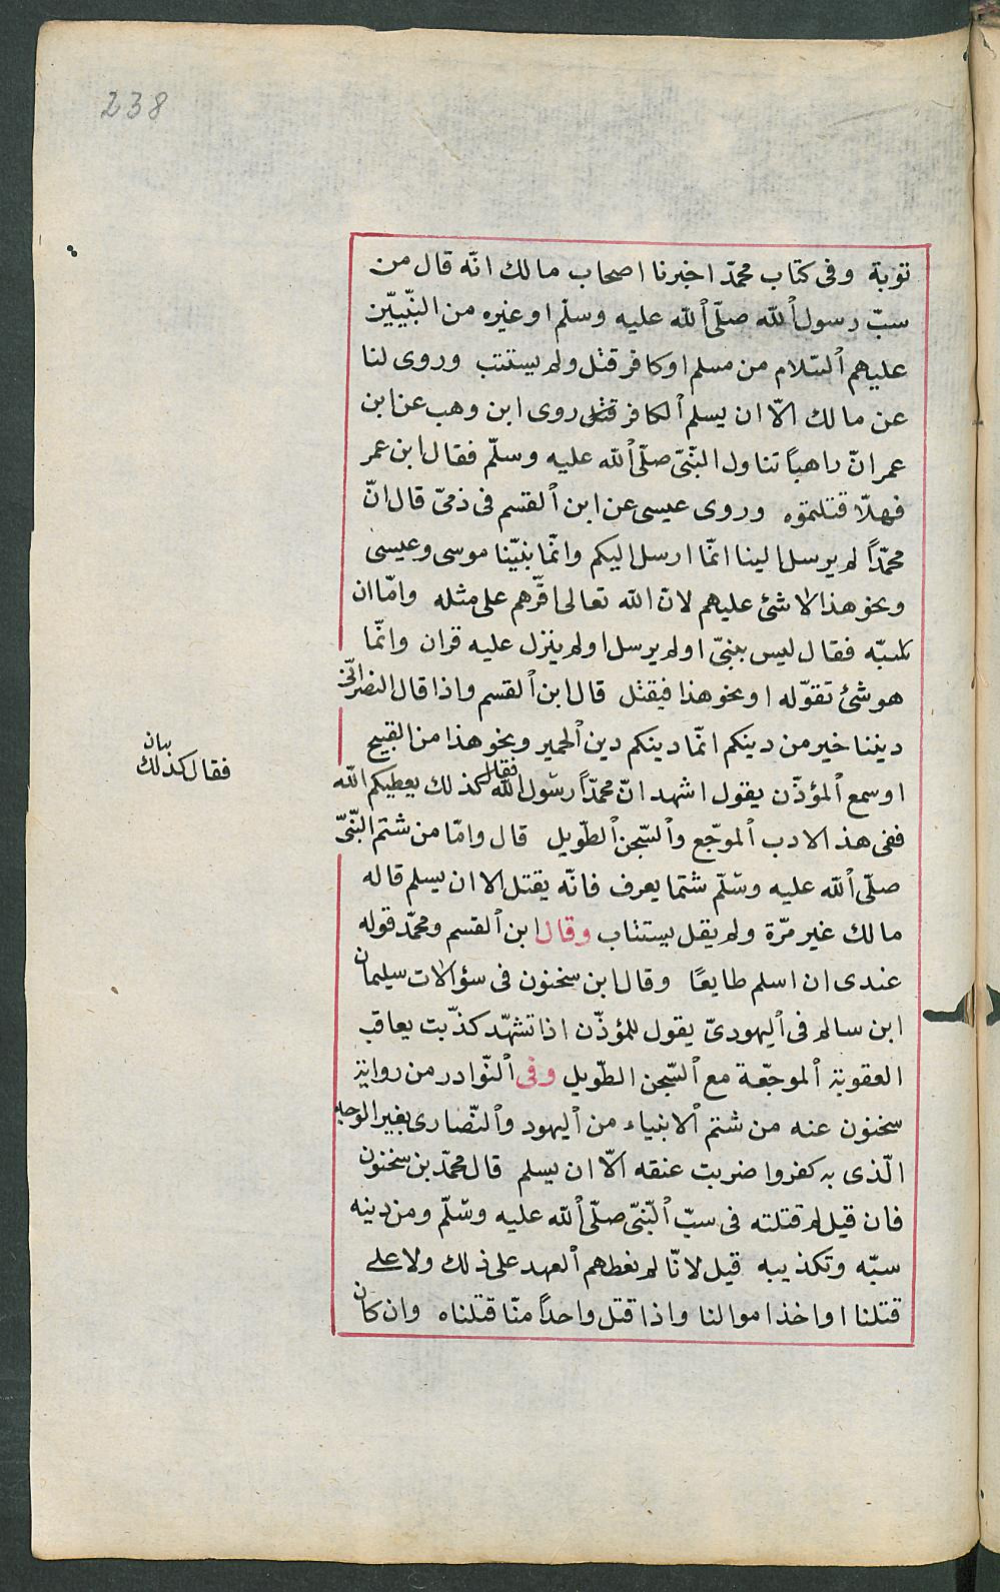 238
توبة وفى كتاب محمّد اخبرنا اصحاب مالك انّه قال من
سبّ رسول ٱللّه صلّى ٱللّه عليه وسلّم او غيره من النّبيّين
عليهم ٱلسّلام من مسلم او كافر قتل ولم يستتب وروى لنا
عن مالك الّا ان يسلم ٱلكافر قتل روى ابن وهب عن ابن
عمر انّ راهباً تناول النّبىّ صلّى ٱللّه عليه وسلّم فقال ابن عمر
فهلّا قتلتموه وروى عيسى عن ابن ٱلقسم فى ذمىّ قال انّ
محمّداً لم يرسل الينا انّما ارسل اليكم وانّما نبيّنا موسى وعيسى
ونحو هذا لا شئ عليهم لان اللّه تعالى اقرّهم على مثله وامّا ان
سبّه فقال ليس بنبىّ او لم يرسل او لم ينزل عليه قران وانّما
هو شئ تقوّله او نحو هذا فيقتل قال ابن ٱلقسم واذا قال النصرانىّ
ديننا خير من دينكم انّما دينكم دين ٱلحمير ونحو هذا من القبيح
او سمع ٱلمؤذّن يقول اشهد انّ محمّداً رسول اللّه فقال كذلك يعطيكم اللّه
ففى هذ الادب ٱلموجّع وٱلسّجن ٱلطّويل قال وامّا من شتم النّبىّ
صلّى ٱللّه عليه وسلّم شتما يعرف فانّه يقتل الا ان يسلم قاله
مالك غير مرّة ولم يقل يستتاب وقال ابن ٱلقسم ومحمّد قوله
عندى ان اسلم طايعًا وقال ابن سخنون فى سؤالات سليمان
ابن سالم فى ٱليهودىّ يقول للمؤذّن اذا تشهّد كذّبت يعاقب
العقوبة ٱلموجّعة مع ٱلسّجن الطّويل وفى ٱلنّوادر من رواية
سخنون عنه من شتم ٱلانبياء من ٱليهود وٱلنّصارى بغير الوجه
الّذى به كفروا ضربت عنقه الّا ان يسلم قال محمّد بن سخنون
فان قيل لم قتلته فى سبّ ٱلنّبىّ صلّى ٱللّه عليه وسلّم ومن دينه
سبّه وتكذيبه قيل لانّا لم نعطهم ٱلعهد على ذلك ولا على
قتلنا او اخذ اموالنا واذا قتل واحداً منّا قتلناه وان كان
بيان
فقال كذلك